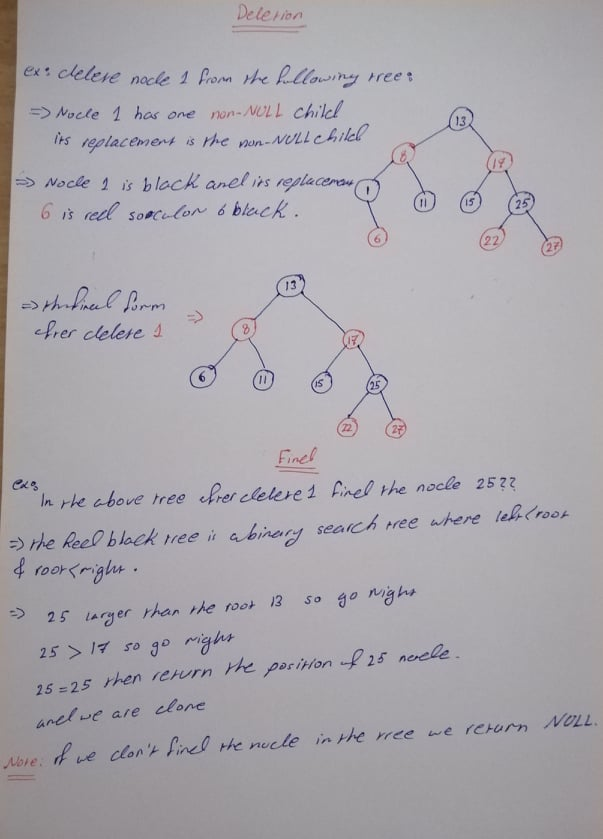 Deletion
ex: delete node 1 from the following tree:
=> Node 1 has one non-NULL child
its replacement is the non-NULL child
=> Node 1 is black and its replacement
6 is red so color 6 black.
13
8
17
1
11
15
25
6
22
27
=> the final form
after delete 1 =>
13
8
17
6
11
15
25
22
27
Find
ex:
In the above tree after delete 1 find the node 25??
=> the Reel black tree is a binary search tree where left<root
& root<right.
=> 25 larger than the root 13 so go right
25 > 17 so go right
25 = 25 then return the position of 25 node.
and we are done
Note: if we don't find the node in the tree we return NULL.